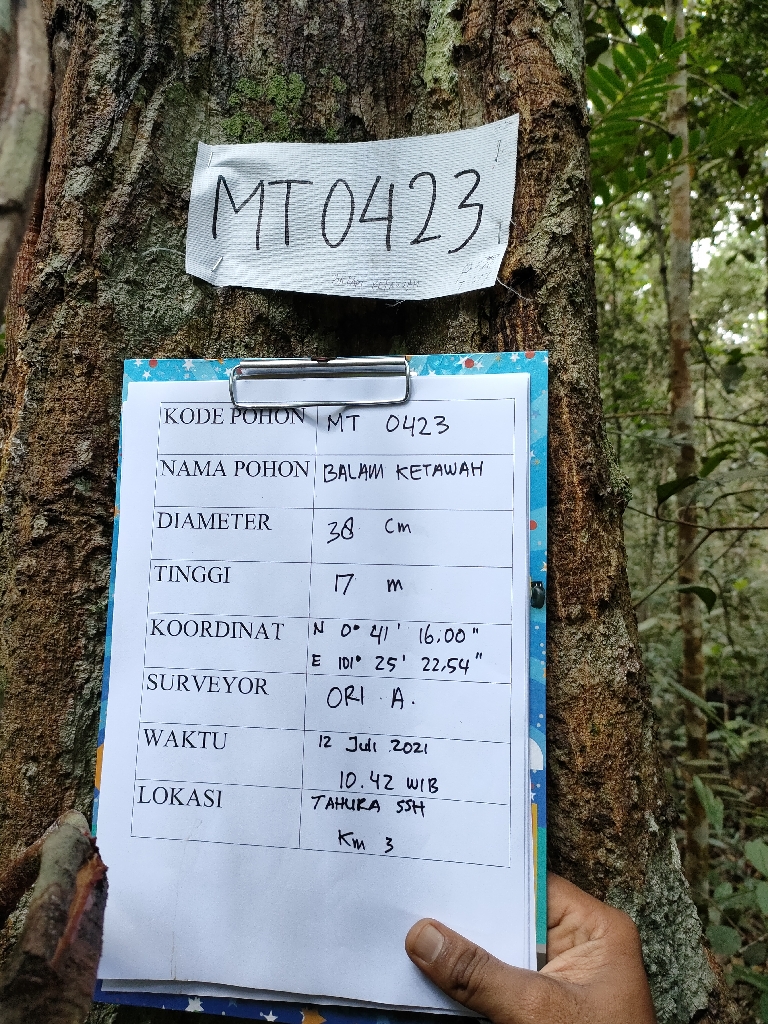 MT0423
KODE POHON MT 0423
NAMA POHON BALAM KETAWAH
DIAMETER 38 Cm
TINGGI 17 m
KOORDINAT N 0° 41' 16.00"
E 101° 25' 22,54"
SURVEYOR ORI . A.
WAKTU 12 Juli 2021
10.42 WIB
LOKASI TAHURA SSH
Km 3